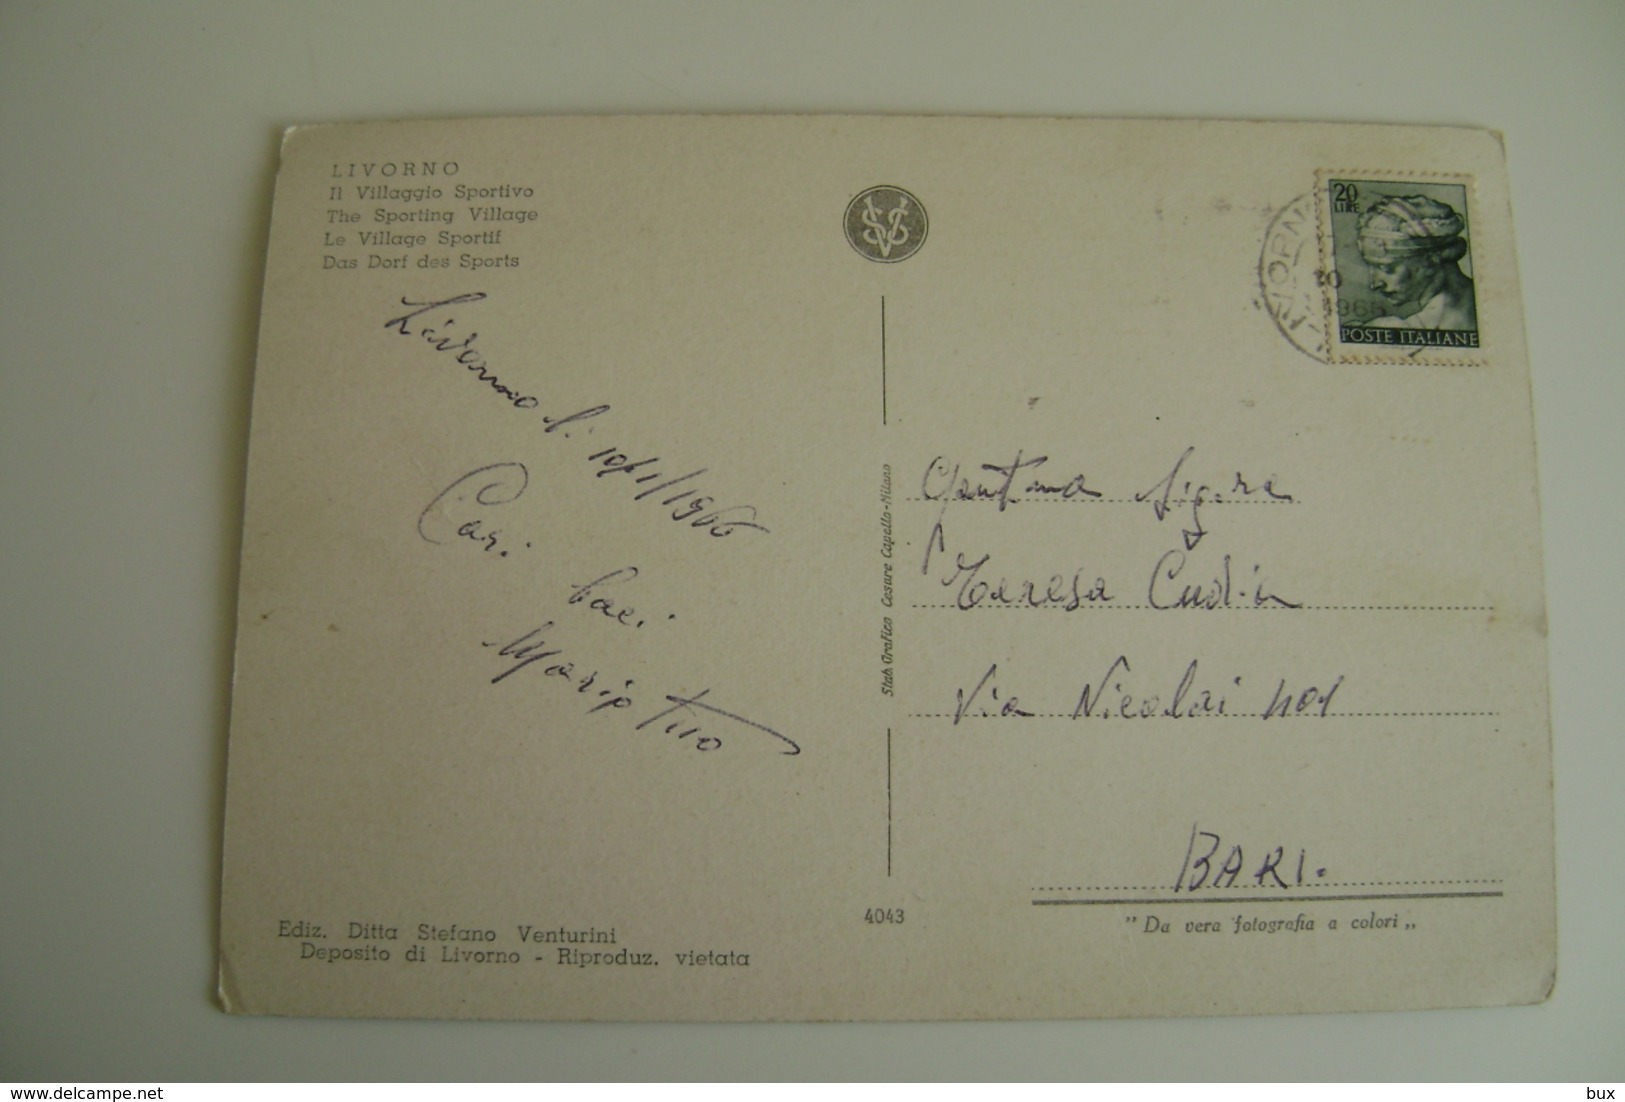 LIVORNO
Il Villaggio Sportivo
The Sporting Village
Le Village Sportif
Das Dorf des Sports
Livorno lì 10/1/1966
Cari baci
Mario Tuo
Ediz. Ditta Stefano Venturini
Deposito di Livorno - Riproduz. vietata
SVS
Stab. Grafico Cesare Capello-Milano
4043
20
LIRE
POSTE ITALIANE
LIVORNO
10
1966
Gentma Sig.ra
Teresa
Via Nicolai 401
BARI.
" Da vera fotografia a colori „
delcampe.net
bux